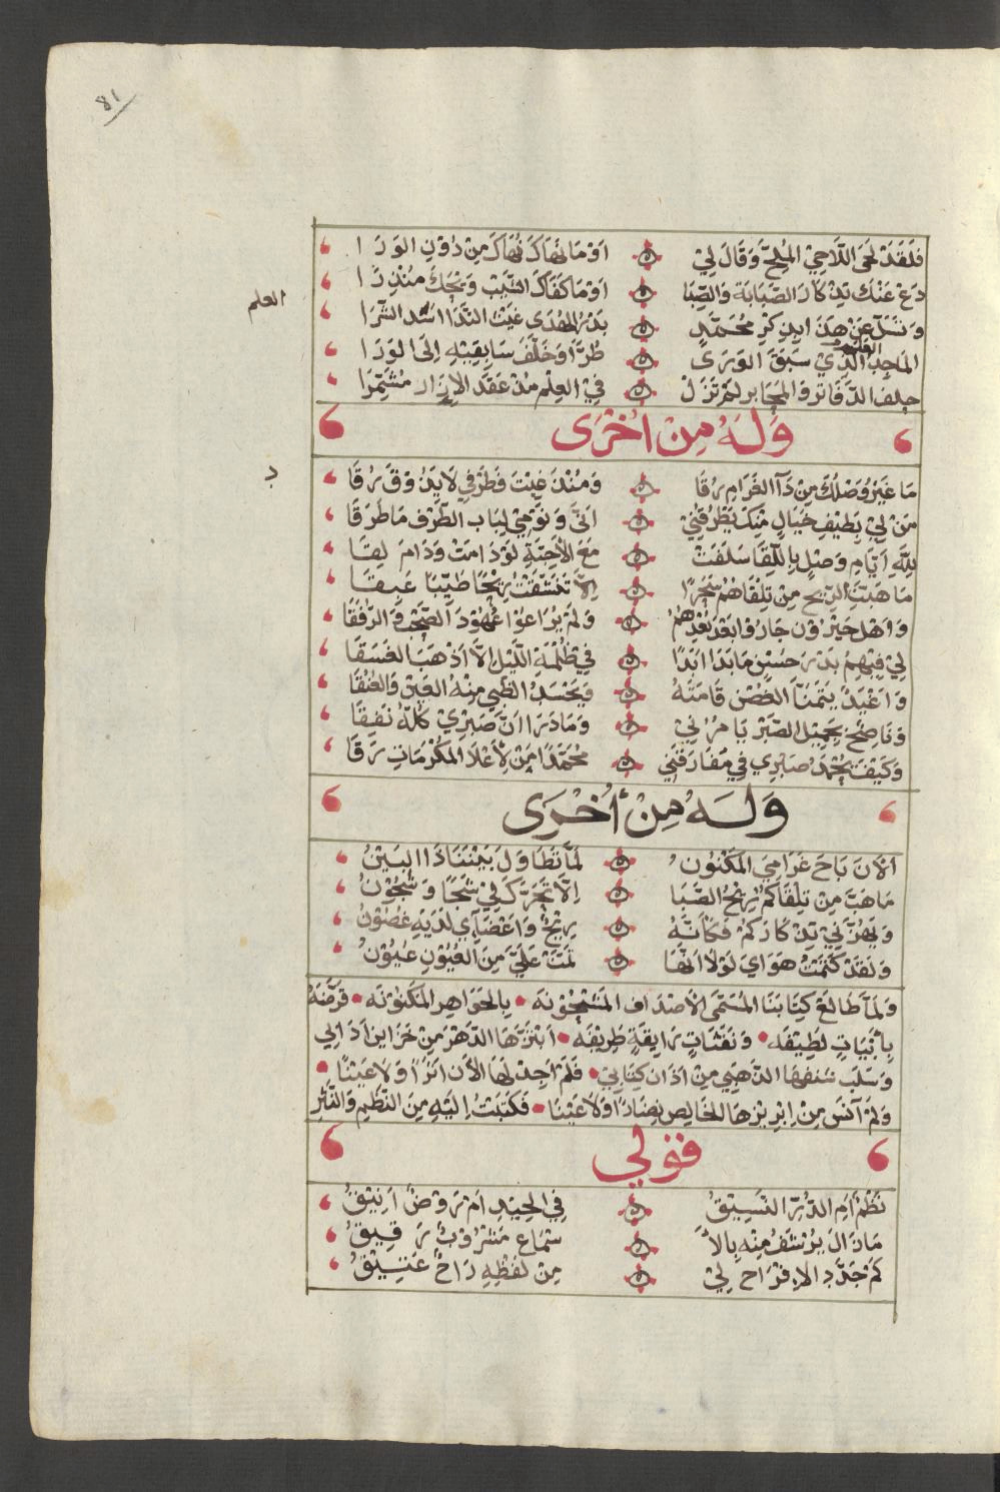 ٨١
فلقد لحى اللاحي الملح وقال لي ۞ او ما نهاك نهاك من دون الورا
دع عنك تذكار الصبابة والصبا ۞ او ما كفاك الشيب ويحك منذرا
وتسل عن هذا بذكر محمد ۞ بدر الهدى غيث الندا اسد الشرا
العلم
الماجد العلم الذي سبق الورى ۞ طرا وخلف سابقيه الى الورا
حلف الدفاتر والمحابر لم تزل ۞ في العلم مذ عقد الازار مشمرا
وَلَهُ مِنْ أُخْرَى
ما غير وصلك من دآ الغرام رقا ۞ ومنذ غبت فطرفي لا يذوق رقا
من لي بطيف خيال منك يطرقني ۞ انى ونومي لباب الطرف ما طرقا
لله ايام وصل باللقا سلفت ۞ مع الاحبة لو دامت ودام لقا
ما هبت الريح من تلقاهم سحرا ۞ الا تنشقت ريحا طيبا عبقا
واهل جيرون جاروا بعد بعدهم ۞ ولم يراعوا عهود الصحب والرفقا
لي فيهم بدر حسن ما بدا ابدا ۞ في ظلمة الليل الا اذهب الغسقا
واغيد يتمنا الغصن قامته ۞ ويحسد الظبي منه العين والعنقا
وناصح بجميل الصبر يامرني ۞ وما درا ان صبري كله نفقا
وكيف يحمد صبري في مفارقتي ۞ محمدا من لأعلا المكرمات رقا
وَلَهُ مِنْ أُخْرَى
الآن باح غرامي المكنون ۞ لما تطاول بيننا ذا البين
ما هب من تلقاكم ريح الصبا ۞ الا تحرك لي شجا وشجون
ويهزني تذكاركم فكانه ۞ ريح واعضآي لديه غصون
ولقد كتمت هواي لولا انها ۞ نمت علي من العيون عيون
ولما طالع كتابنا المسمى الاصداف المشحونه • بالجواهر المكنونه • قرضه
بأبيات لطيفه • ونفثات رايقة طريفه • ابتزها الدهر من خزاين ادابي
وسلب شنفها الذهبي من اذان كتابي • فلم اجد لها الآن اثرا ولا عينا •
ولم آنس من ابريزها الخالص نضارا ولا عينا • فكتبت اليه من النظم والنثر
قولي
نظم ام الدر النسيق ۞ في الجيد ام روض انيق
مازال يرشف منه بالا ۞ سماع مشروب رقيق
كم جدد الافراح لي ۞ من لفظه راح عتيق